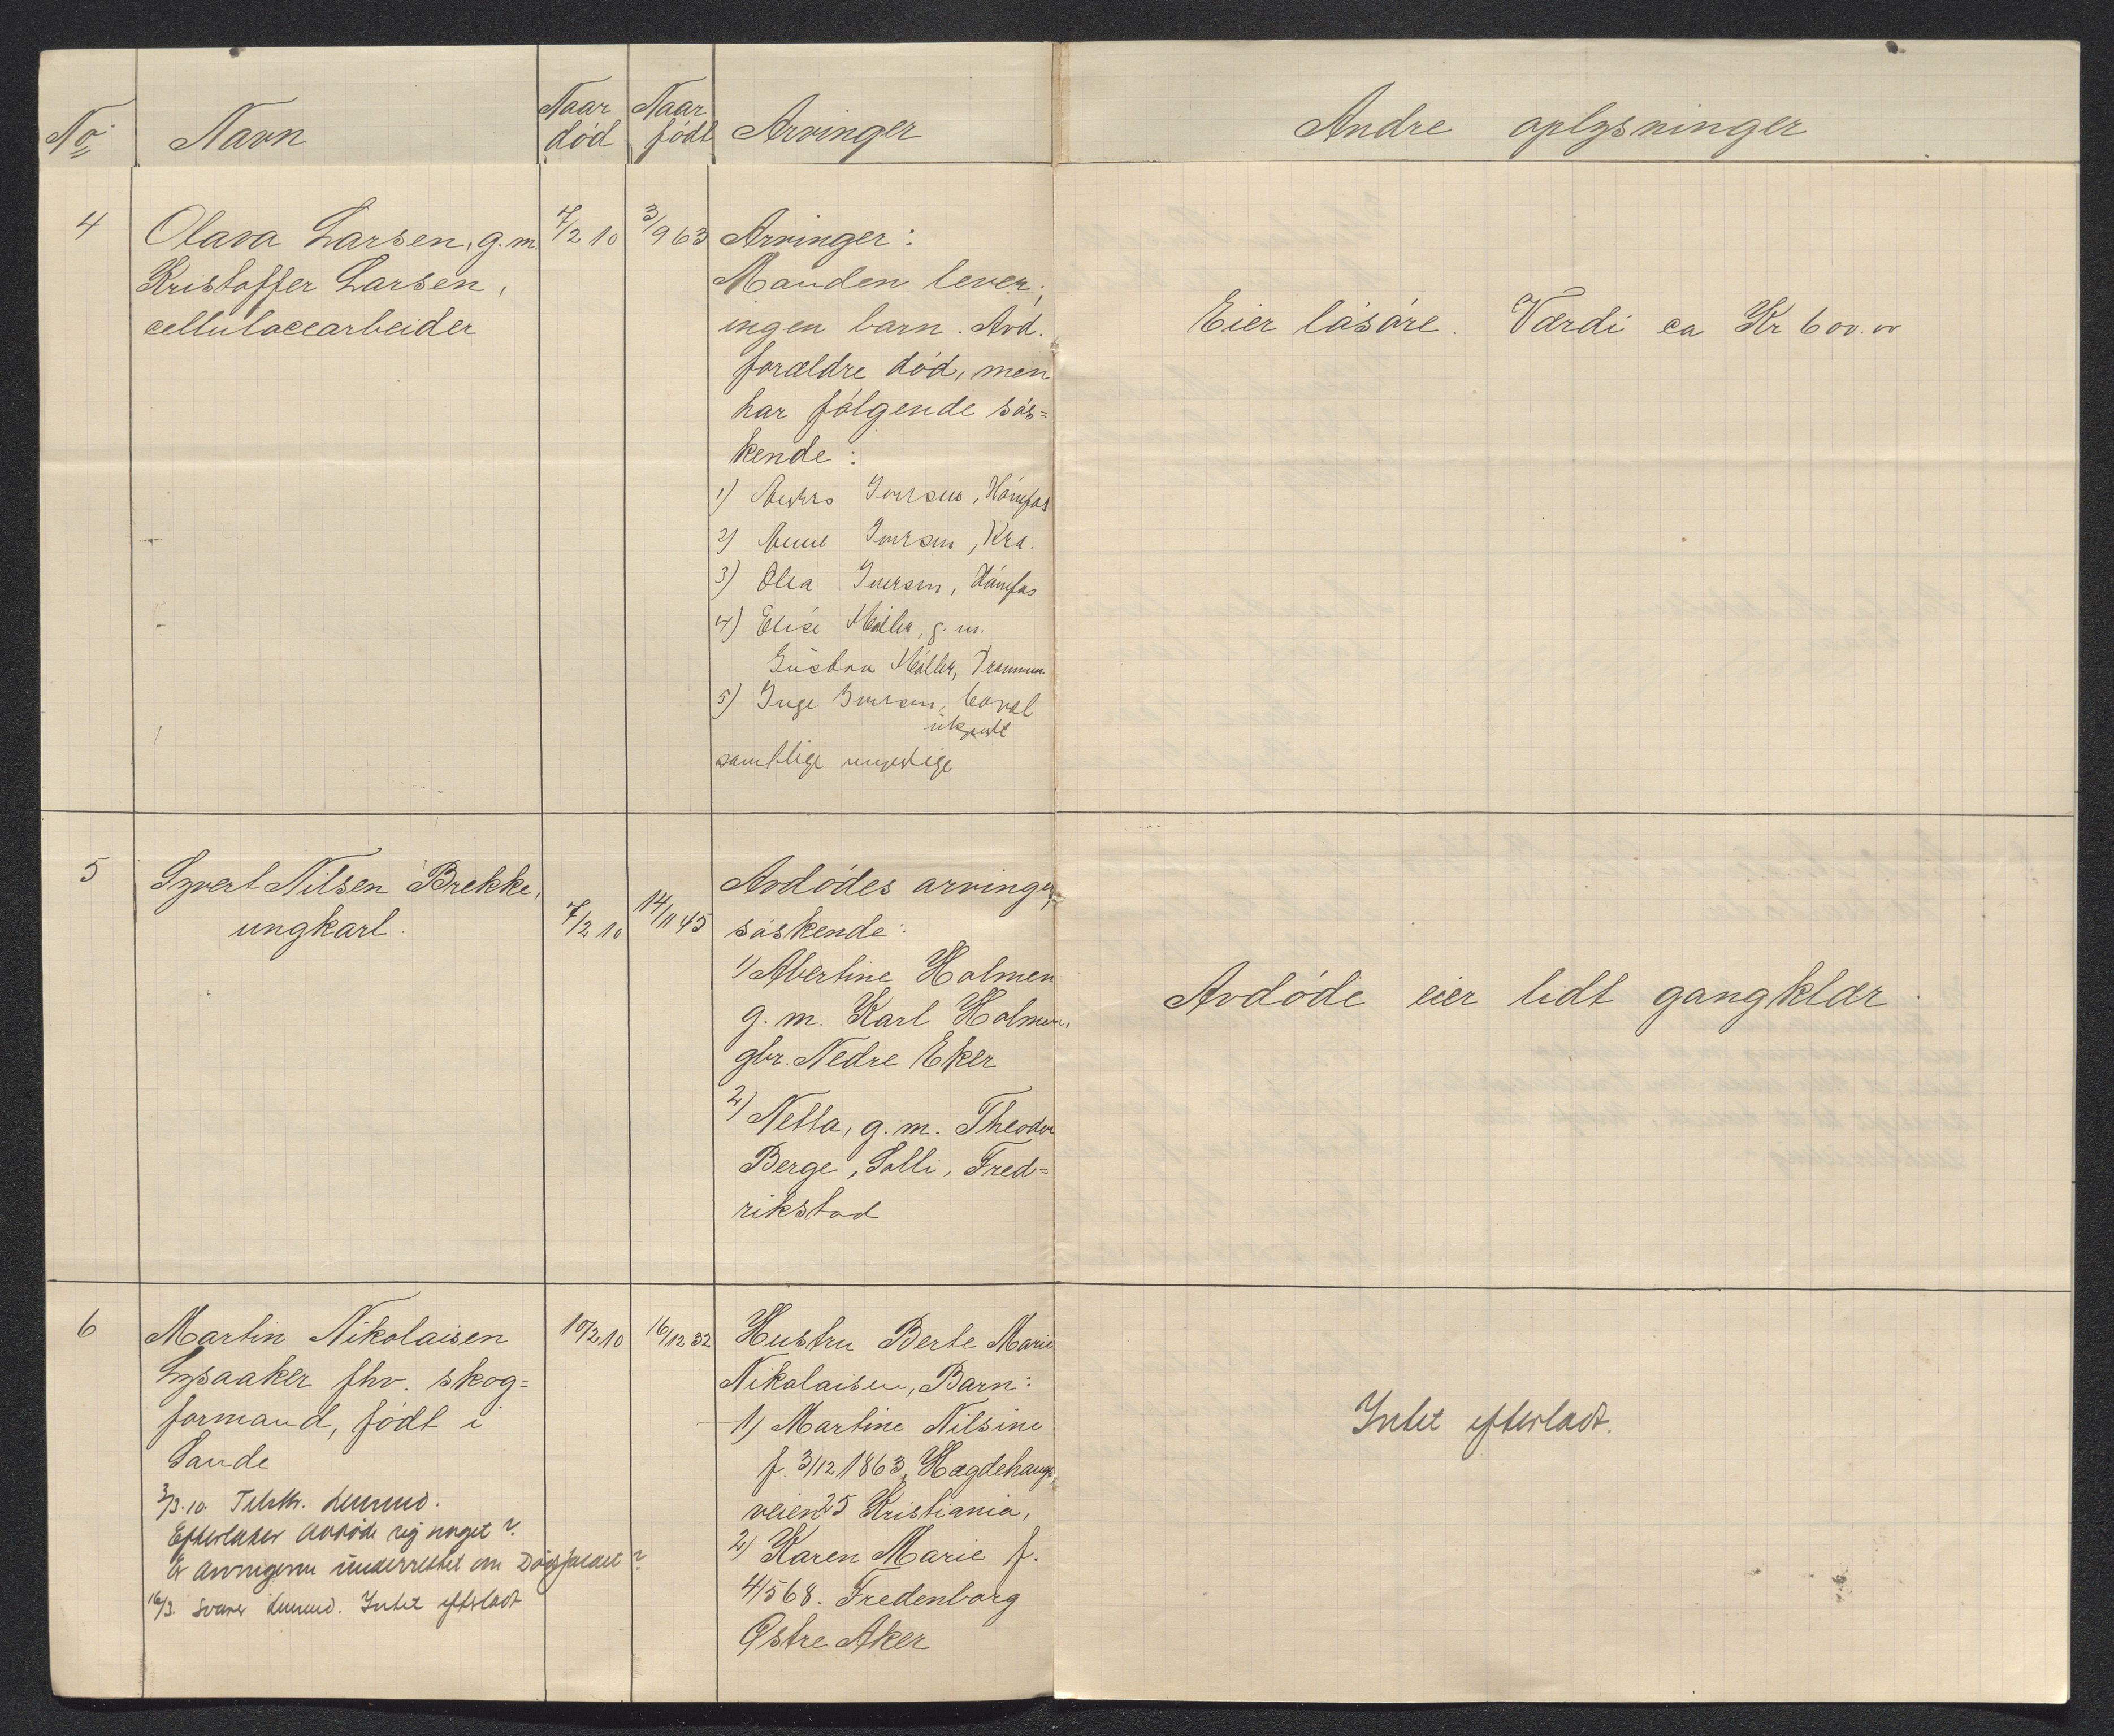 No. Navn Naar død Naar født Arvinger Andre oplysninger
4 Olava Larsen, g. m. 7/2 10 3/9 63 Arvinger:
Kristoffer Larsen,
cellulosearbeider
Manden lever,
ingen barn. Avd.
forældre død, men
har følgende søs=
kende:
1) Iversen, Hønefos
2) Iversen, Kra.
3) Olea Iversen, Hønefos
4) Elise Møller, g. m.
Gustav Møller, Drammen
5) Inge Iversen,
ukjendt
samtlige myndige
Eier løsøre. Værdi ca Kr 600.00
5 Syvert Nilsen Brekke,
ungkarl.
7/2 10 14/11 45
Avdødes arvinger,
søskende:
1) Abertine Holmen
g. m. Karl Holmen,
gbr. Nedre Eker
2) Netta, g. m. Theodor
Berge, Solli, Fred=
rikstad
Avdøde eier lidt gangklær.
6 Martin Nikolaisen
Lysaaker fhv. skog=
formand, født i
Sande
3/3.10. Telef.
Efterlater avdøde sig noget?
Er arvingerne underrettet om Dødsfaldet?
16/3. svarer Intet efterladt
10/2 10 16/12 32
Hustru Berte Marie
Nikolaisen, Barn:
1) Martine Nilsine
f. 3/12 1863, Hægdehaugs
veien 25 Kristiania,
2) Karen Marie f.
4/5 68. Fredenborg
Østre Aker
Intet efterladt.